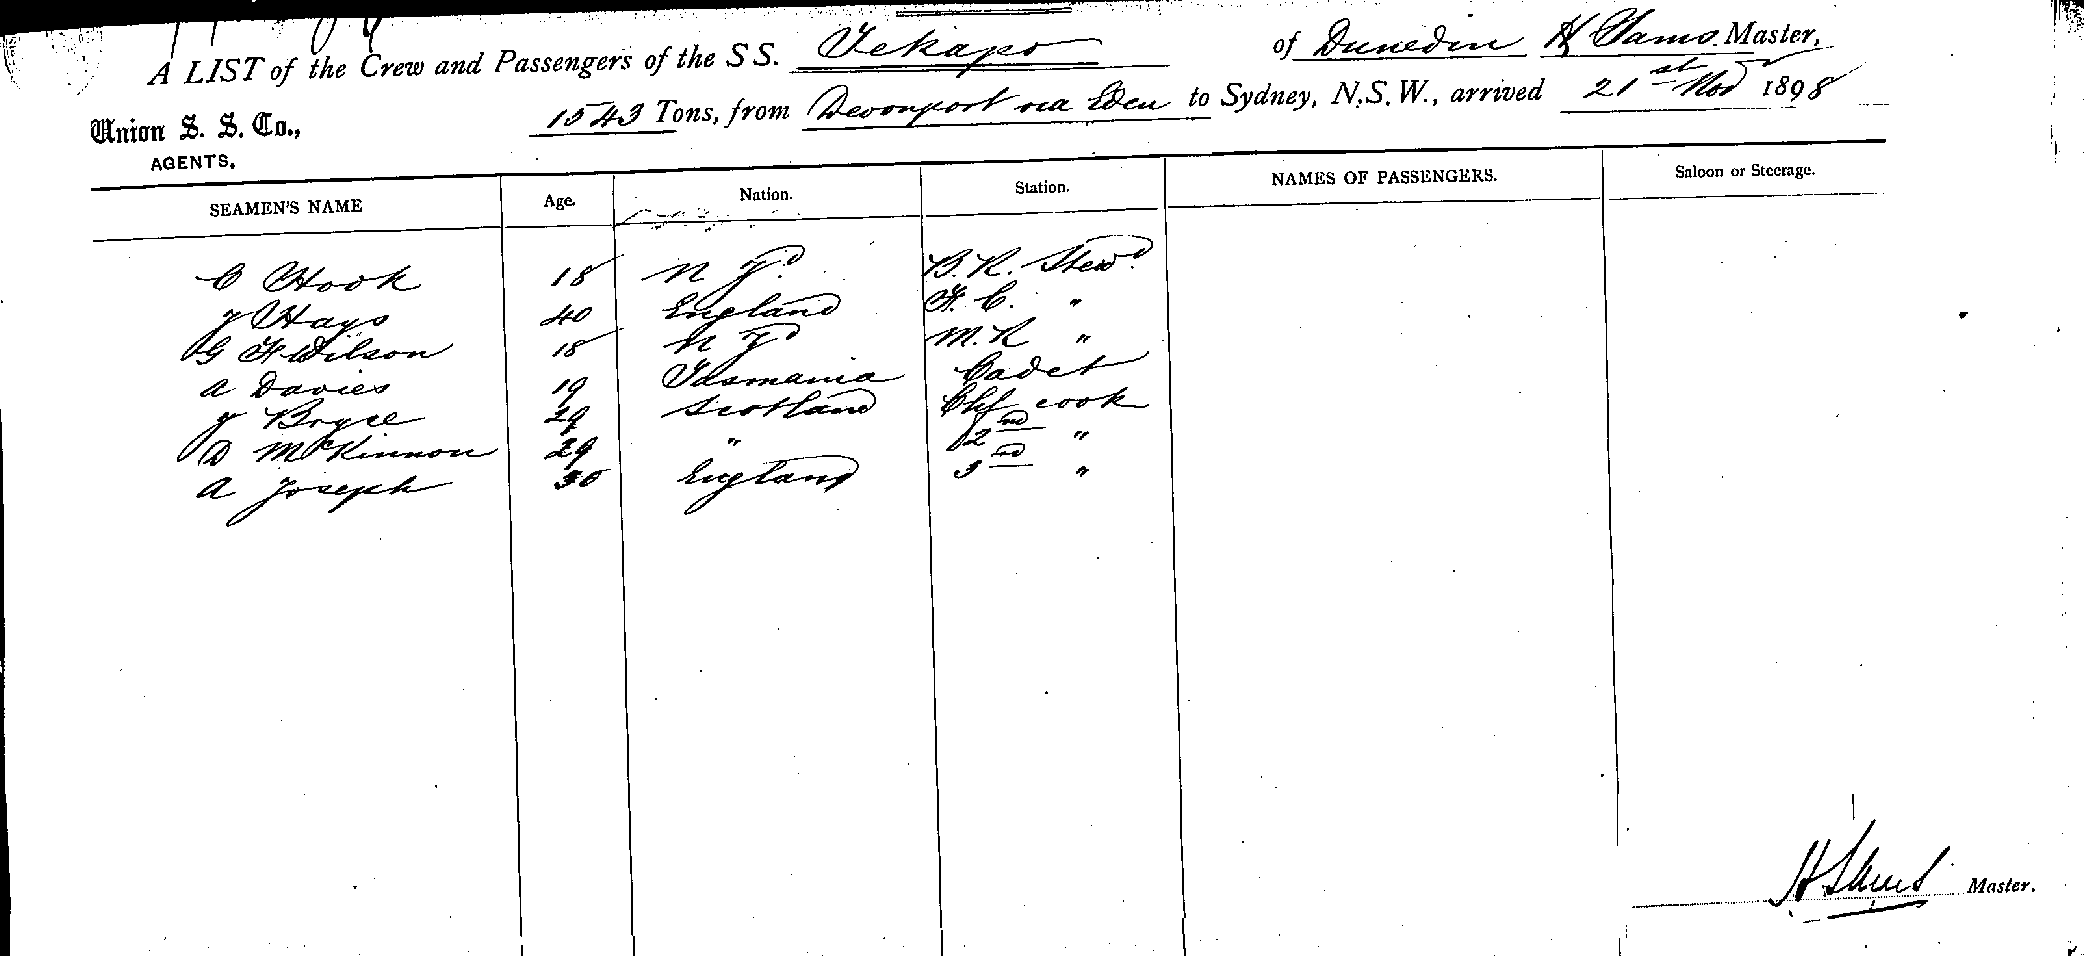 A LIST of the Crew and Passengers of the S S. Tekapo of Dunedin H Master,
Union S. S. Co., 1543 Tons, from Devonport via Eden to Sydney, N.S.W., arrived 21st Nov 1898
AGENTS.
SEAMEN'S NAME Age. Nation. Station. NAMES OF PASSENGERS. Saloon or Steerage.
C Hook 18 N Zd B. R. Stewd
J Hays 40 England F. C. "
G H Wilson 18 N Zd M. R "
A Davies 19 Tasmania Cadet
J Bryce 29 Scotland Chf cook
D McKinnon 29 " 2nd "
A Joseph 30 England 3rd "
Master.